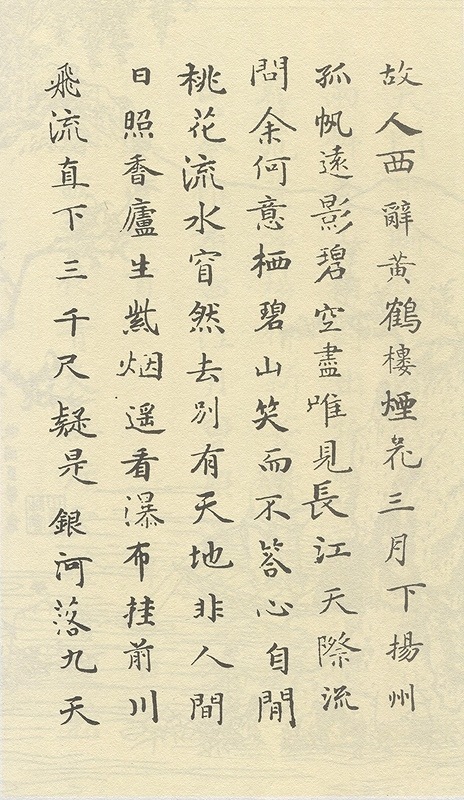 故人西辭黃鶴樓煙花三月下揚州
孤帆遠影碧空盡唯見長江天際流
問余何意栖碧山笑而不答心自閒
桃花流水窅然去別有天地非人間
日照香廬生紫烟遥看瀑布挂前川
飛流直下三千尺疑是銀河落九天